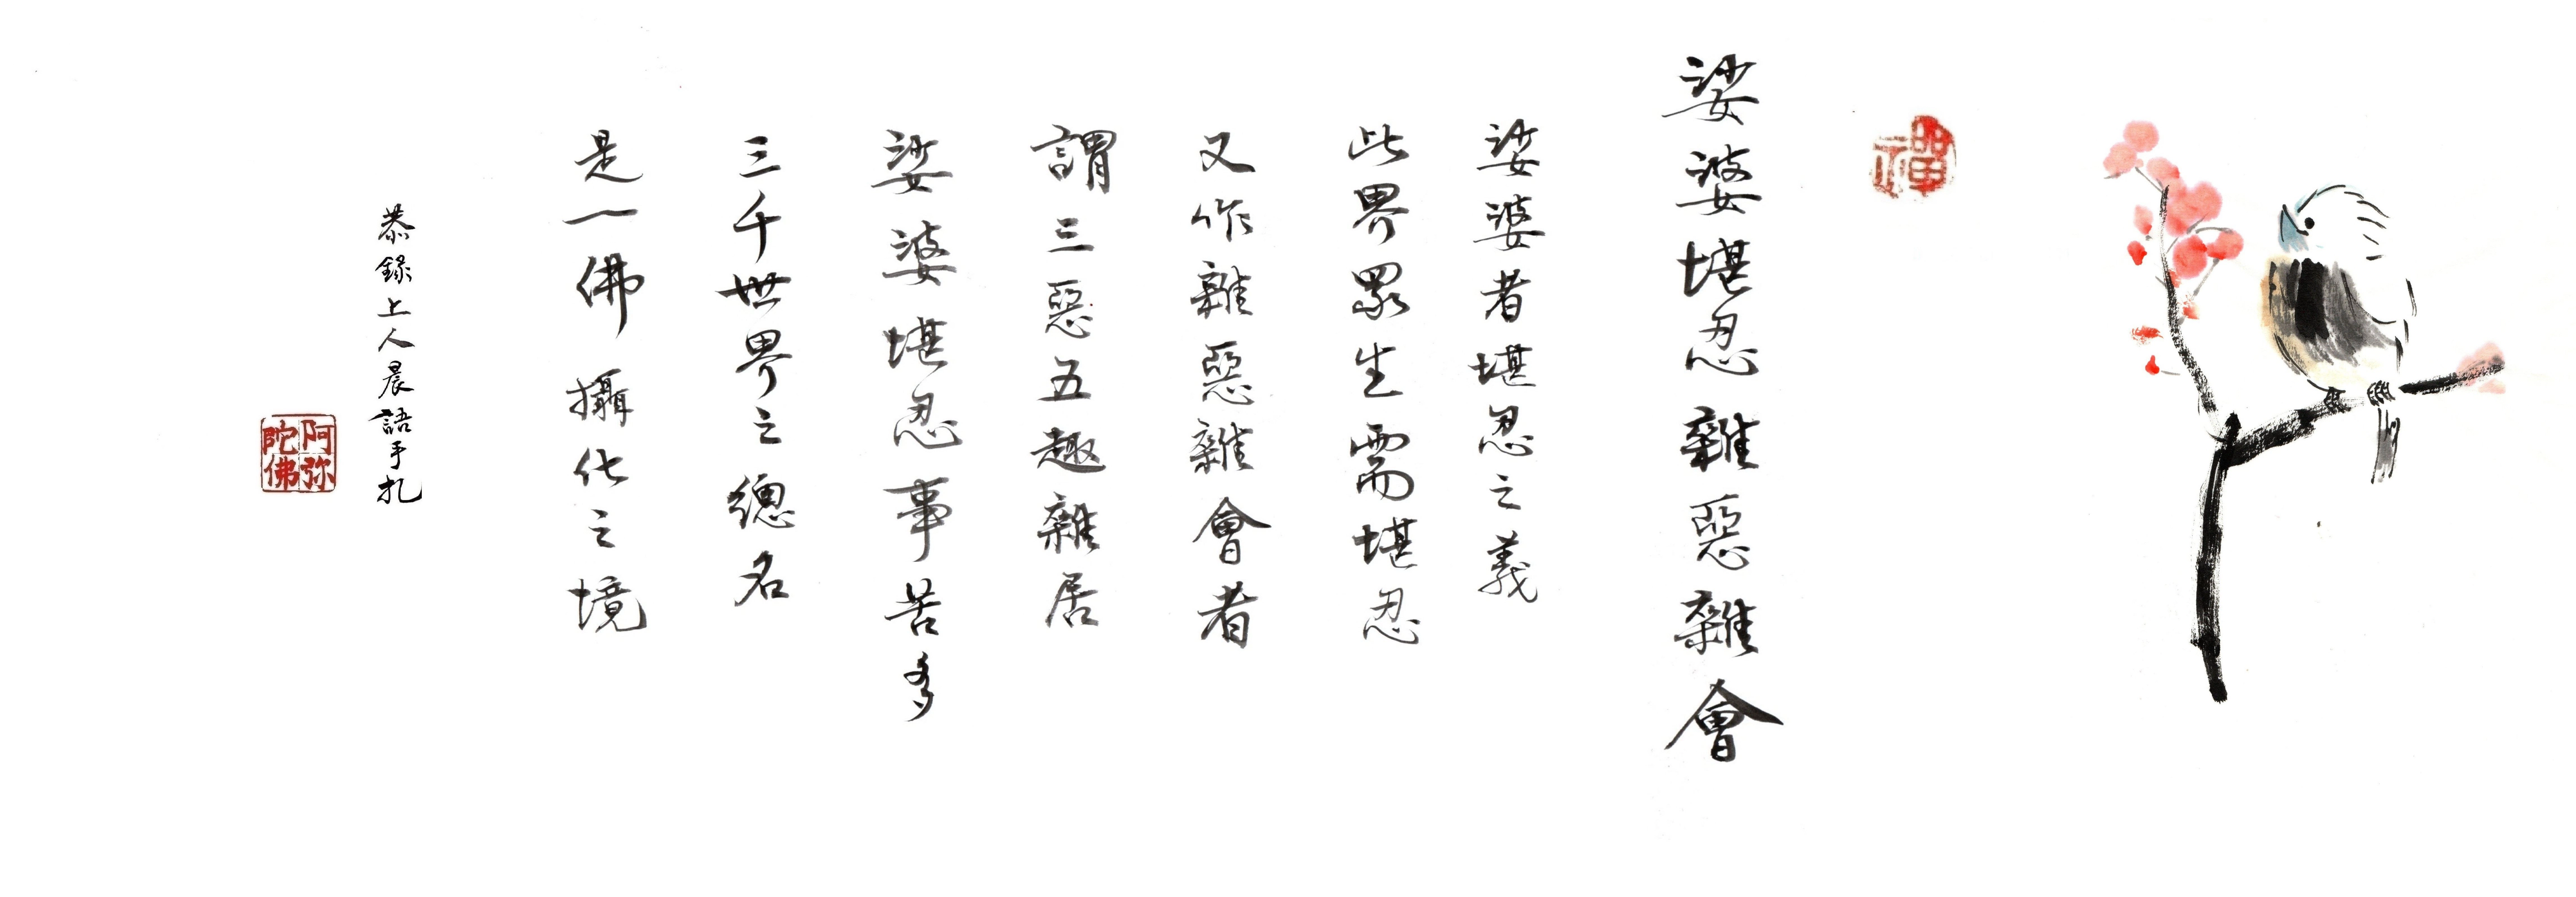 禪
娑婆堪忍雜惡雜會
娑婆者堪忍之義
此界眾生需堪忍
又作雜惡雜會者
謂三惡五趣雜居
娑婆堪忍事苦多
三千世界之總名
是一佛攝化之境
恭錄上人晨語手札
阿弥
陀佛